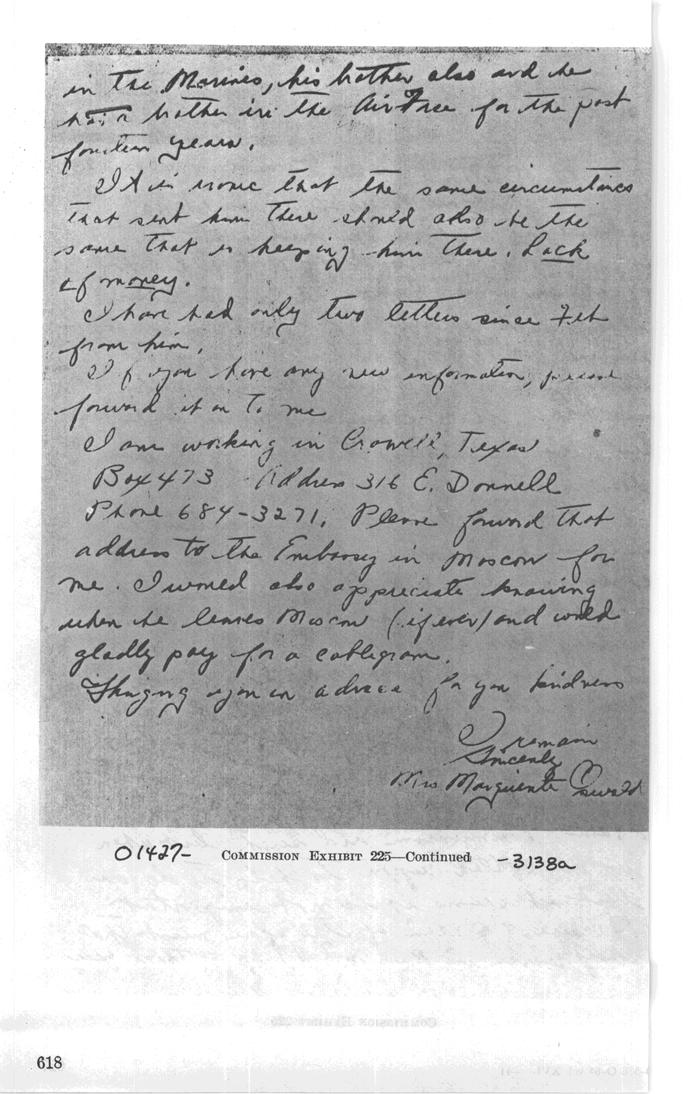 in the Marines, his brother also and he
has a brother in the Air Force for the past
fourteen years.
It is ironic that the same circumstances
that sent him there should also be the
same that is keeping him there. Lack
of money.
I have had only two letters since Feb
from him.
If you have any new information, please
forward it on to me
I am working in Crowell, Texas
Box 473 Address 316 E. Donnell
Phone 684-3271. Please forward that
address to the Embassy in Moscow for
me. I would also appreciate knowing
when he leaves Moscow (if ever) and would
gladly pay for a cablegram.
you in advance for your kindness
I remain
Sincerely
Mrs Marguerite Oswald
01427- COMMISSION EXHIBIT 225—Continued -3138a
618